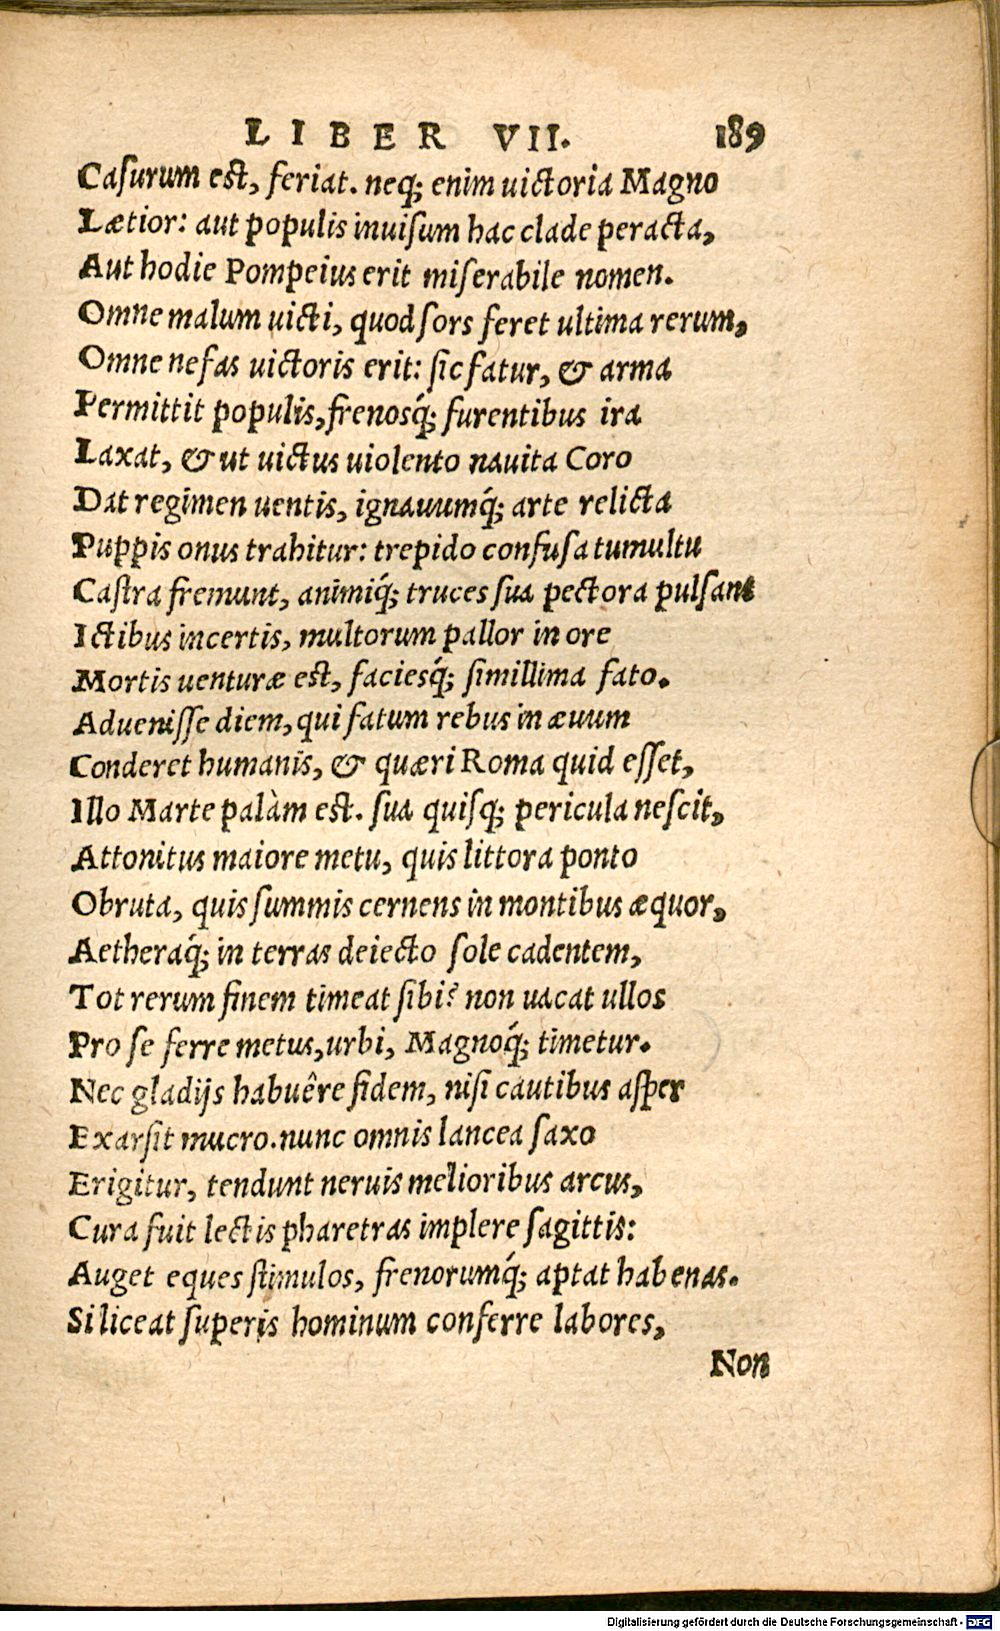 LIBER VII. 189
Casurum est, feriat. neq; enim uictoria Magno
Lætior: aut populis inuisum hac clade peracta,
Aut hodie Pompeius erit miserabile nomen.
Omne malum uicti, quod sors feret ultima rerum,
Omne nefas uictoris erit: sic fatur, & arma
Permittit populis, frenosq́; furentibus ira
Laxat, & ut uictus uiolento nauita Coro
Dat regimen uentis, ignauumq́; arte relicta
Puppis onus trahitur: trepido confusa tumultu
Castra fremunt, animiq́; truces sua pectora pulsant
Ictibus incertis, multorum pallor in ore
Mortis uenturæ est, faciesq́; simillima fato.
Aduenisse diem, qui fatum rebus in æuum
Conderet humanis, & quæri Roma quid esset,
Illo Marte palàm est. sua quisq; pericula nescit,
Attonitus maiore metu, quis littora ponto
Obruta, quis summis cernens in montibus æquor,
Aetheraq́; in terras deiecto sole cadentem,
Tot rerum finem timeat sibi? non uacat ullos
Pro se ferre metus, urbi, Magnoq́; timetur.
Nec gladijs habuêre fidem, nisi cautibus asper
Exarsit mucro. nunc omnis lancea saxo
Erigitur, tendunt neruis melioribus arcus,
Cura fuit lectis pharetras implere sagittis:
Auget eques stimulos, frenorumq́; aptat habenas.
Si liceat superis hominum conferre labores,
Non
Digitalisierung gefördert durch die Deutsche Forschungsgemeinschaft - DFG